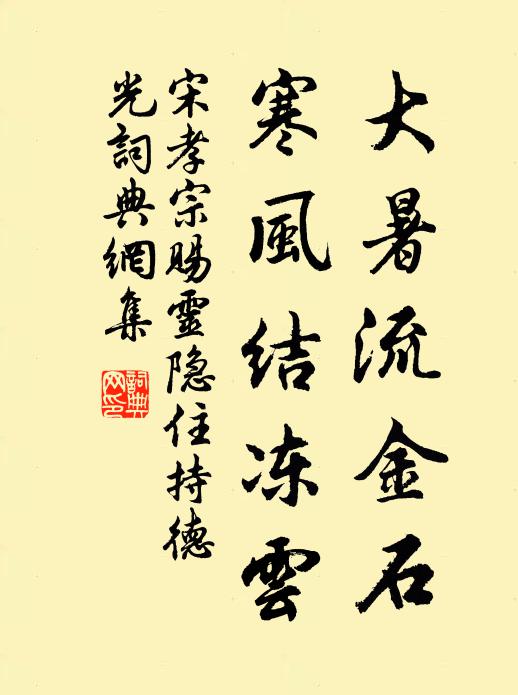 大暑流金石
寒風結冻雲
宋孝宗賜靈隐住持德
光詞典網集
詞典
网印